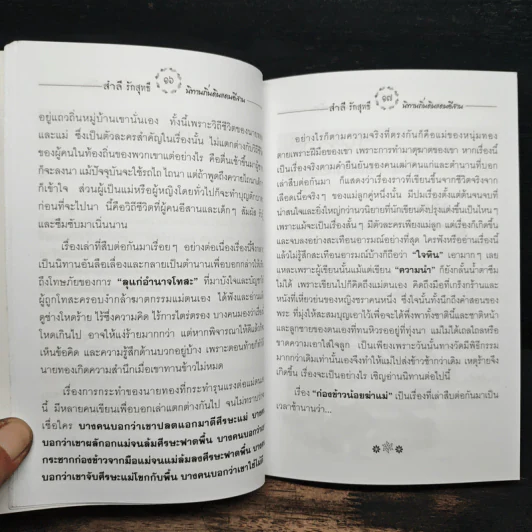 สำลี รักสุทธี ๑๖ นิทานถิ่นดินหอมอีสาน
อยู่แถวถิ่นหมู่บ้านเขานั่นเอง ทั้งนี้เพราะวิถีชีวิตของนายทอง
และแม่ ซึ่งเป็นตัวละครสำคัญในเรื่องนั้น ไม่แตกต่างกับวิถีชีวิต
ของผู้คนในท้องถิ่นของพวกเขาแต่อย่างไร คือตื่นเช้าขึ้นมา
ก็จะลงนา แม้ปัจจุบันจะใช้รถไถ ไถนา แต่ถ้าพูดถึงควายไถนาเด็ก
ก็เข้าใจ ส่วนผู้เป็นแม่หรือผู้หญิงโดยทั่วไปก็จะทำบุญตักบาตร
ก่อนที่จะไปนา นี่คือวิถีชีวิตที่ผู้คนอีสานและเด็กๆ สัมผัส
และซึมซับมาเนิ่นนาน
เรื่องเล่าที่สืบต่อกันมาเรื่อยๆ อย่างต่อเนื่องเรื่องนี้จึง
เป็นนิทานอันลือเลื่องและกลายเป็นตำนานเพื่อบอกกล่าวให้
ถึงโทษภัยของการ "ลุแก่อำนาจโทสะ" ที่มาบังใจและบัญชา
ผู้ถูกโทสะครอบงำกล้าฆาตกรรมแม่ตนเอง ได้ฟังและอ่านแล้ว
ดูช่างโหดร้าย ไร้ซึ่งความคิด ไร้การไตร่ตรอง บางคนมองว่า
โหดเกินไป อาจให้แง่ร้ายมากกว่า แต่หากพิจารณาให้ดีมีเด็ก
เห็นข้อคิด และความรู้สึกด้านบวกอยู่บ้าง เพราะตอนท้ายก็
นายทองเกิดความสำนึกเมื่อเขาทานข้าวไม่หมด
เรื่องการกระทำของนายทองที่กระทำรุนแรงต่อแม่ตนเอง
นี้ มีหลายคนเขียนเพื่อบอกเล่าแตกต่างกันไป จนไม่ทราบว่า
เชื่อใคร บางคนบอกว่าเขาปลดแอกมาตีศีรษะแม่ บาง
บอกว่าเขาผลักอกแม่จนล้มศีรษะฟาดพื้น บางคนบอกว่า
กระชากก่องข้าวจากมือแม่จนแม่ล้มลงศีรษะฟาดพื้น
บอกว่าเขาจับศีรษะแม่โขกกับพื้น บางคนบอกว่าเขาใช้ไม้
สำลี รักสุทธี ๑๗ นิทานถิ่นดินหอมอีสาน
อย่างไรก็ตามความจริงที่ตรงกันก็คือแม่ของหนุ่มทอง
ตายเพราะฝีมือของเขา เพราะการทำมาตุฆาตของเขา หากเรื่องนี้
เป็นเรื่องจริงตามคำยืนยันของคนเฒ่าคนแก่และตำนานที่บอก
เล่าสืบต่อกันมา ก็แสดงว่าเรื่องราวที่เขียนขึ้นจากชีวิตจริงจาก
เลือดเนื้อจริงๆ ของแม่ลูกคู่หนึ่งนั้น มีปมเรื่องตั้งแต่ต้นจนจบที่
น่าสนใจและยิ่งใหญ่กว่านวนิยายที่นักเขียนดังปรุงแต่งขึ้นเป็นไหนๆ
เพราะแม้จะเป็นเรื่องสั้นๆ มีตัวละครเพียงแม่ลูก แต่เรื่องก็เกิดขึ้น
และจบลงอย่างสะเทือนอารมณ์อย่างที่สุด ใครฟังหรืออ่านเรื่องนี้
แล้วไม่รู้สึกสะเทือนอารมณ์บ้างก็ถือว่า "ใจหิน" เอามากๆ เลย
แหละเพราะผู้เขียนนั้นแม้แต่เขียน "ความนำ" ก็ยังกลั้นน้ำตาซึม
ไม่ได้ เพราะเขียนไปก็คิดถึงแม่ตนเอง คิดถึงมือที่เกร็งกร้านและ
หนังที่เหี่ยวย่นของหญิงชราคนหนึ่ง ซึ่งใจนั้นทั้งนึกถึงคำสอนของ
พระ ที่มุ่งให้สะสมบุญเอาไว้เพื่อจะได้พึ่งพาทั้งชาตินี้และชาติหน้า
และลูกชายของตนเองที่ทนหิวรออยู่ที่ทุ่งนา แม่ไม่ได้เถลไถลหรือ
ขาดความเอาใส่ใจลูก เป็นเพียงเพราะวันนั้นทางวัดมีพิธีกรรม
มากกว่าเดิมเท่านั้นเองจึงทำให้แม่ไปส่งข้าวช้ากว่าเดิม เหตุร้ายจึง
เกิดขึ้น เรื่องจะเป็นอย่างไร เชิญอ่านนิทานต่อไปนี้
เรื่อง "ก่องข้าวน้อยฆ่าแม่" เป็นเรื่องที่เล่าสืบต่อกันมาเป็น
เวลาช้านานว่า...